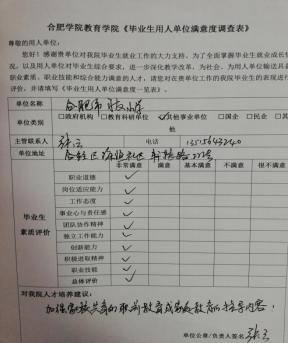 合肥学院教育学院《毕业生用人单位满意度调查表》
尊敬的用人单位：
您好！感谢贵单位对我院毕业生就业工作的大力支持。为了全面掌握毕业就业成长情
况，以及用人单位对毕业生综合要求，进一步深化教学改革，为社会、为用人单位输送具备
职业素质、职业技能和综合能力满意的人才，请您对在贵单位工作的我院毕业生的表现进行
评价，并请填写《毕业生用人单位满意度一览表》。
单位名称 合肥市 小学
单位类别 □政府机构 □教育科研单位 其他事业单位 □国企 □民企 □其
他
主管联系人 张 电话
单位地址
非常满意 满意 基本满意 不满意 很不满意
毕业生
素质评价
职业道德 ✓
岗位适应能力 ✓
工作态度 ✓
事业心与责任感 ✓
团队协作精神 ✓
独立工作能力 ✓
创新能力 ✓
积极进取精神 ✓
职业技能 ✓
总体评价 ✓
对我院人才培养建议：
加强家校共育的 教育 教育的指导内容。
单位公章/负责人签名 张